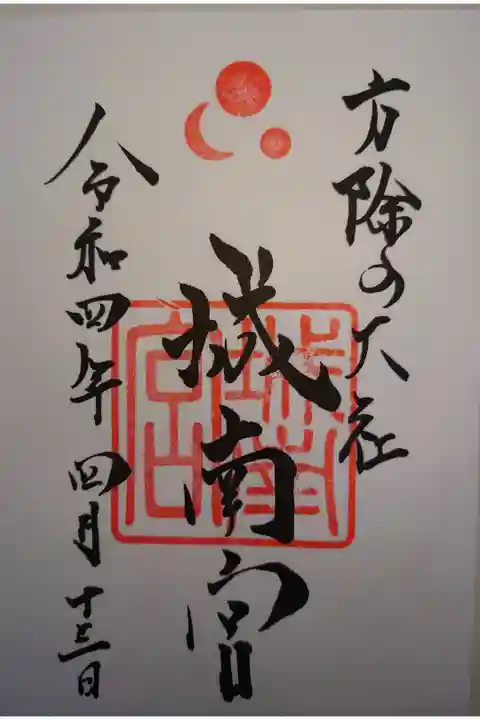 方除の大社
城南宮
令和四年四月十三日